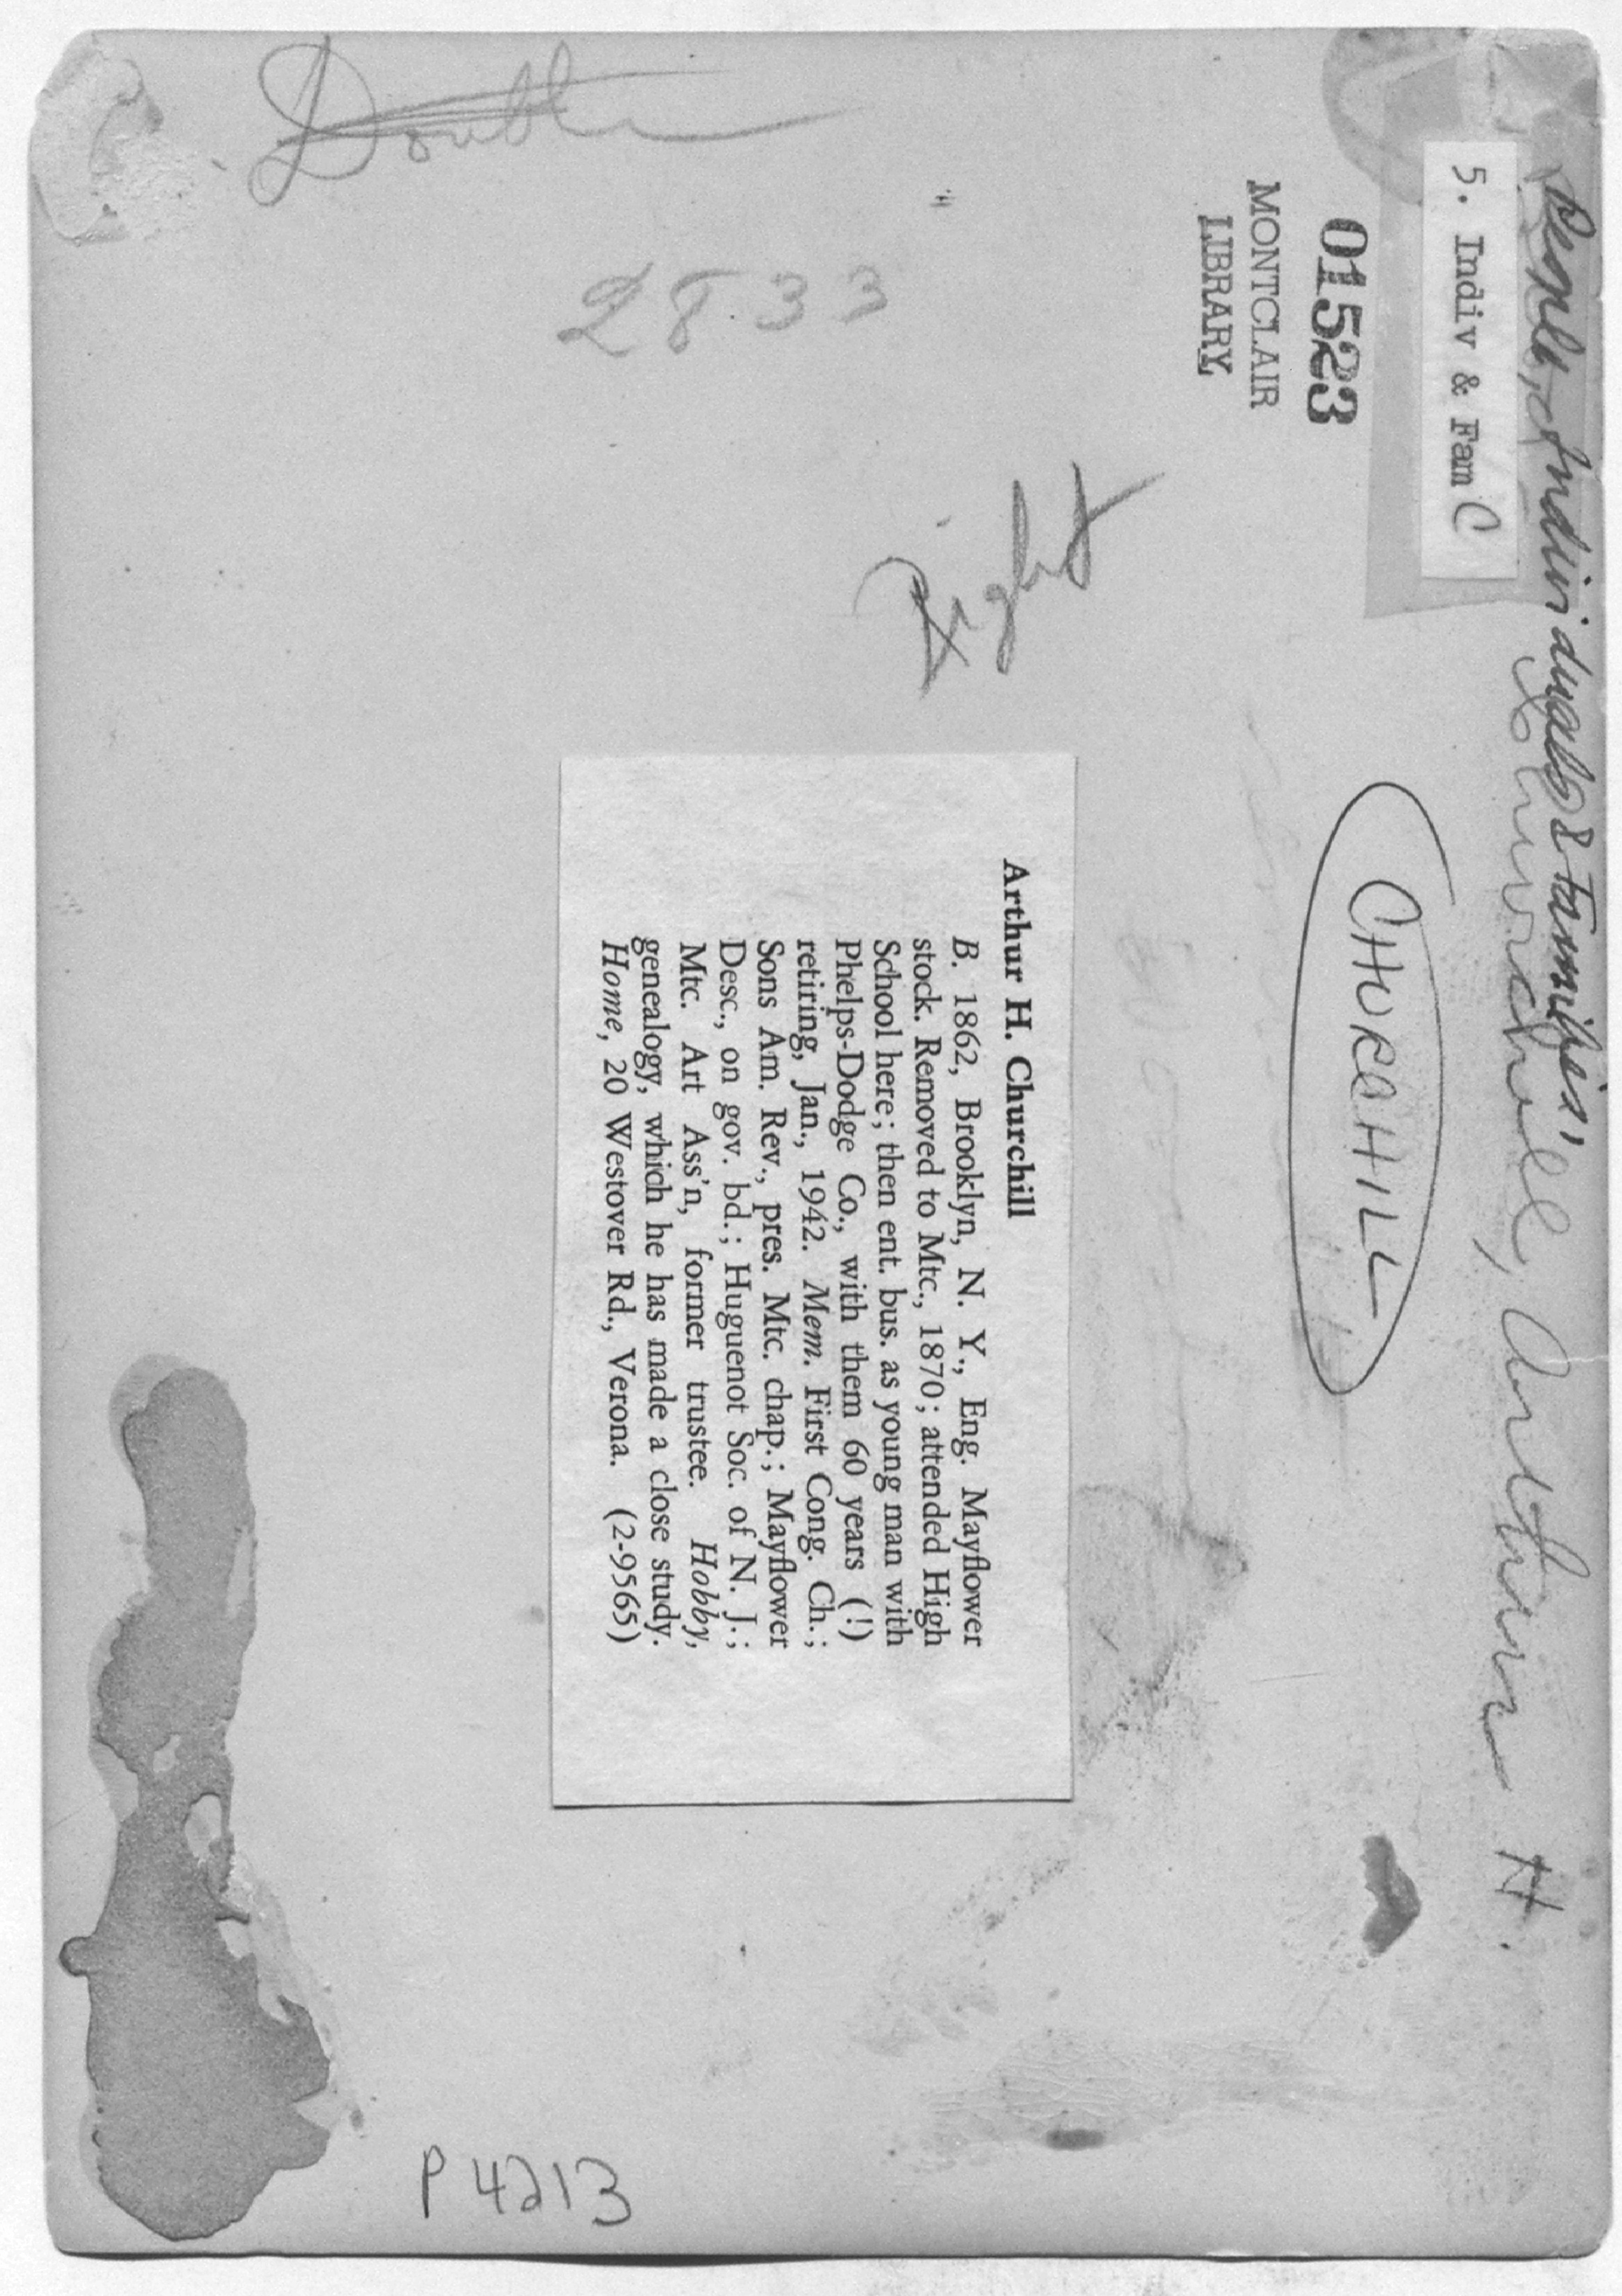 People, Individuals & Families'
Churchill, Arthur H.
5. Indiv & Fam C
01523
MONTCLAIR
LIBRARY
CHURCHILL
Right
Arthur H. Churchill
B. 1862, Brooklyn, N. Y., Eng. Mayflower
stock. Removed to Mtc., 1870; attended High
School here; then ent. bus. as young man with
Phelps-Dodge Co., with them 60 years (!)
retiring, Jan., 1942. Mem. First Cong. Ch.;
Sons Am. Rev., pres. Mtc. chap.; Mayflower
Desc., on gov. bd.; Huguenot Soc. of N. J.;
Mtc. Art Ass'n, former trustee. Hobby,
genealogy, which he has made a close study.
Home, 20 Westover Rd., Verona. (2-9565)
2833
Double
P4213